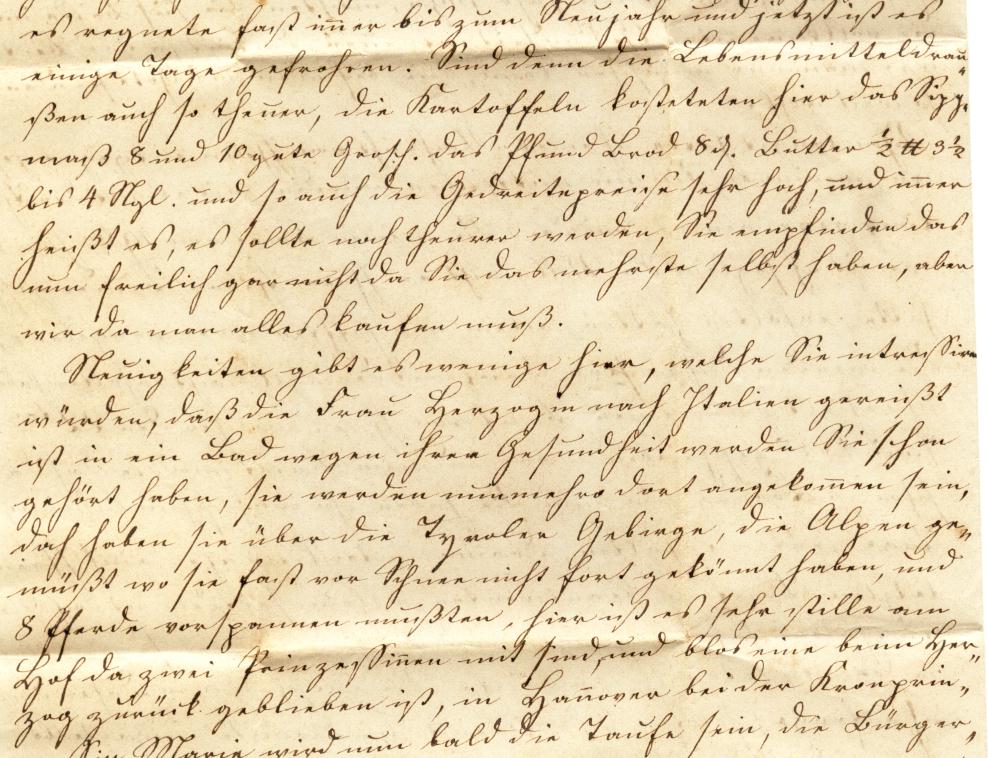 es regnete fast im̄er bis zum Neujahr und jetzt ist es
einige Tage gefrohren. Sind denn die Lebensmittel drau„
ßen auch so theuer, die Kartoffeln kosteteten hier das Sipp„
maß 8 und 10 gute Grosch. das Pfund Brod 8 ₰. Butter ½ ℔ 3½
bis 4 Ngl. und so auch die Gedreitepreise sehr hoch, und im̄er
heißt es, es sollte noch theurer werden, Sie empfinden das
nun freilich gar nicht da Sie das mehrste selbst haben, aber
wir da man alles kaufen muß.
Neuigkeiten gibt es wenige hier, welche Sie intressiren
würden, daß die Frau Herzogin nach Italien gereißt
ist in ein Bad wegen ihrer Gesundheit werden Sie schon
gehört haben, sie werden nunmehro dort angekom̄en sein,
doch haben sie über die Tyroler Gebirge, die Alpen ge„
müßt wo sie fast vor Schnee nicht fort gekönnt haben, und
8 Pferde vorspannen mußten, hier ist es sehr stille am
Hof da zwei Prinzessin̄en mit sind, und blos eine beim Her„
zog zurück geblieben ist, in Han̄over bei der Kronprin„
Marie wird nun bald die Taufe sein, die Bürger„